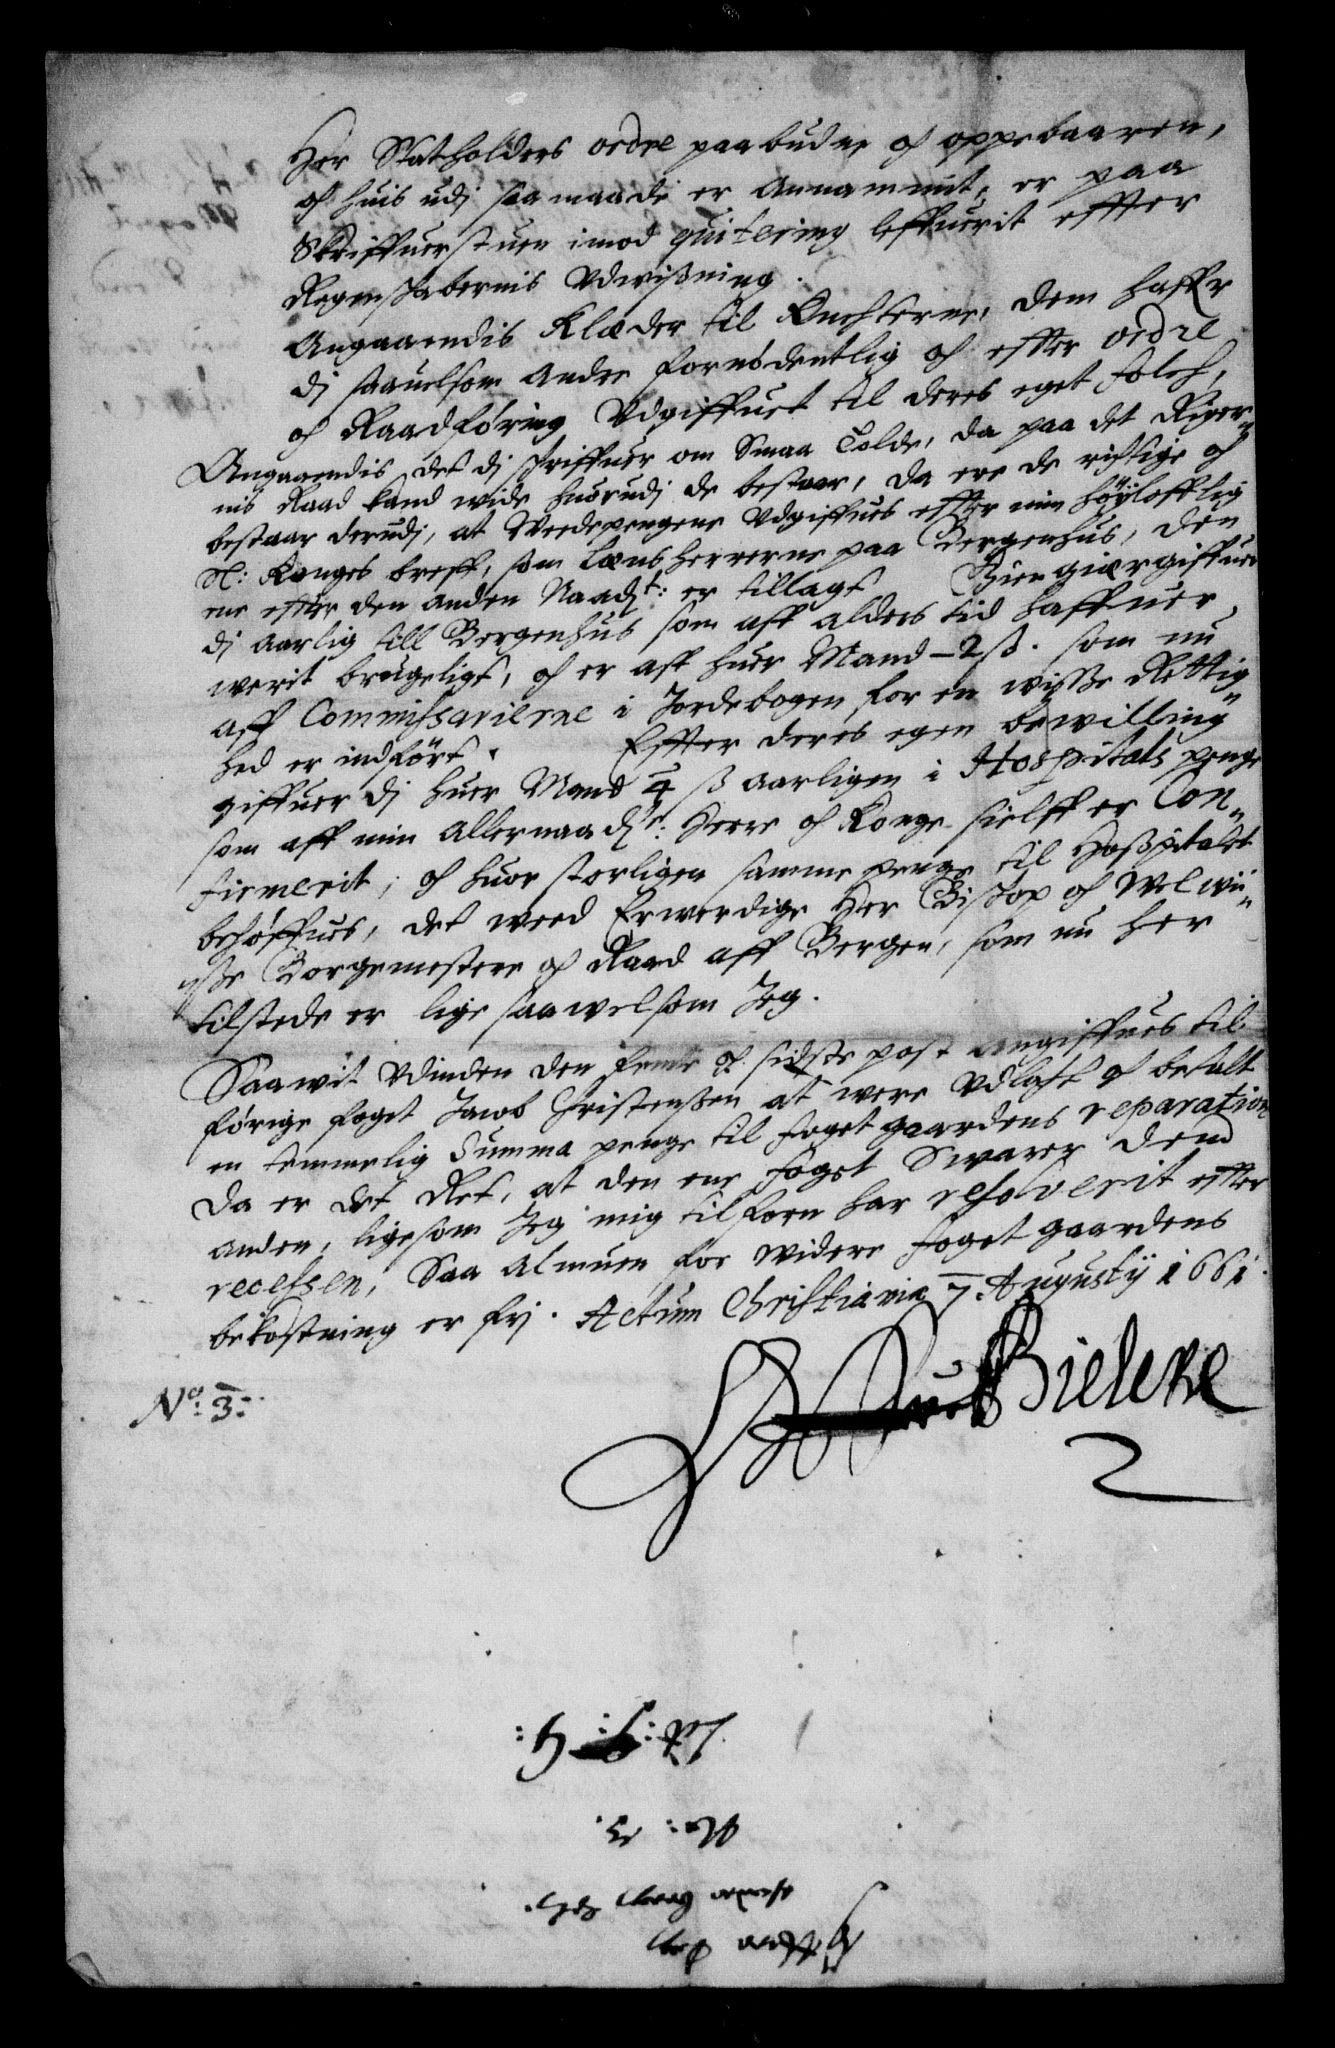 Her Statholders ordre paabudne och oppebaaren,
och huis udj saamaade er Annammit, er paa
Skriffuerstuen imod quitering leffuerit effter
Regenskabernis Vdwißning.
Angaaendis Klæder til Knechterne, dem haffr
dj saauelsom andre fornødentlig och effter ordre
och Raadføring Vdgiffuet til deres eget folch,
Angaaendis det dj skriffuer om Smaa Tolde, da paa det Riger„
nis Raad kand wide huorudj de bestaar, da ere de richtige och
bestaar derudj, at Weedepengene Vdgiffues effter min høylofflig
N: Konges breff, som Lænsherrerne paa Bergenhus, den
ene effter den anden Naadst: er tillagt Biergiærgiffuer
dj aarlig till Bergenhus som aff alders tid haffuer
werit brugeligt, och er aff huer Mand – 2 ß. som nu
aff Commissarierne i Jordebogen for en wisße Rettig„
hed er indført. Effter deres egen bewilling
giffuer dj huer Mand 4 ß aarligen i Hospitals penge
som aff min allernaadste: Herre och Konge sielff er Con„
firmerit; och huor storligen samme penge til Hoßpitalet
behøffues, det weed Erwerdige Her Bischop och Welwii„
ße Borgemestere och Raad aff Bergen, som nu her
tilstede er lige saawelsom Jeg.
Saawit Vdinden den femte och sidste post angiffues til
førige foget Jacob Christenßen at were Vdlagt och betalt
en temmelig Summa penge til fogetgaardens reparation
da er det Ret, at den ene foget Swarer dend
anden, ligesom Jeg mig tilforn har resolverit effter
recessen, Saa almuen for widere fogetgaardens
bekostning er frj. Actum Christiania 7 Augustij 1661.
Bielcke
No: 3:
No: 3.